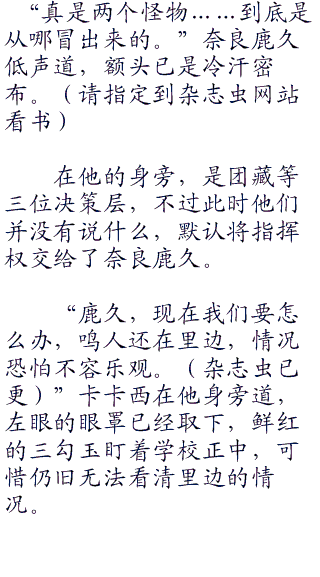 “真是两个怪物……到底是
从哪冒出来的。”奈良鹿久
低声道，额头已是冷汗密
布。（请指定到杂志虫网站
看书）
在他的身旁，是团藏等
三位决策层，不过此时他们
并没有说什么，默认将指挥
权交给了奈良鹿久。
“鹿久，现在我们要怎
么办，鸣人还在里边，情况
恐怕不容乐观。（杂志虫已
更）”卡卡西在他身旁道，
左眼的眼罩已经取下，鲜红
的三勾玉盯着学校正中，可
惜仍旧无法看清里边的情
况。